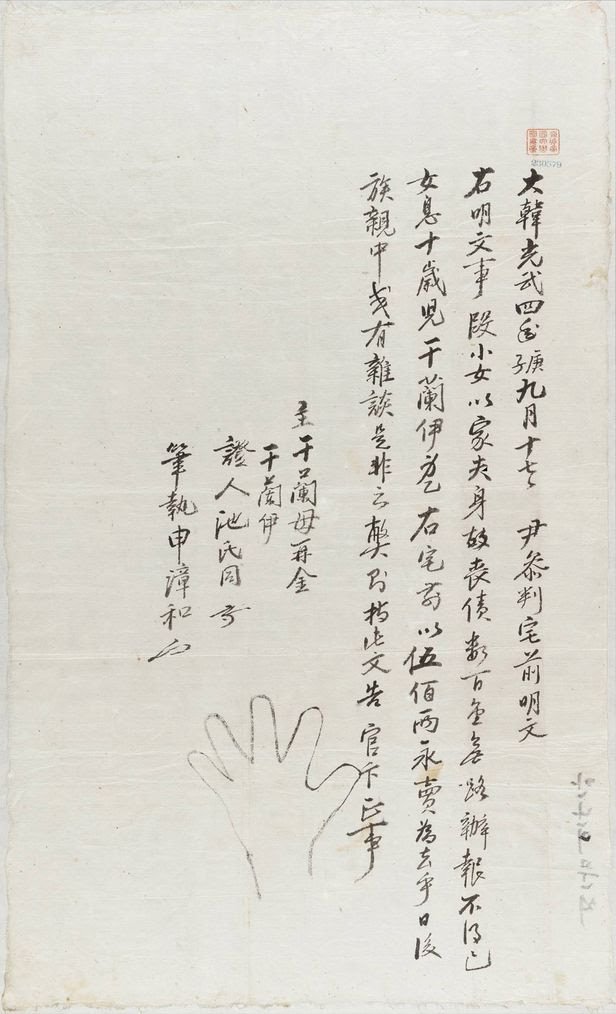 大韓光武四年庚子九月十七日 尹參判宅前明文
右明文事段小女以家夫身故喪債數百金無路辦報不得已
女息十歲児干蘭伊乙 右宅前以伍佰兩永賣為去乎日後
族親中或有雜談是非之弊則持此文告 官卞正事
主干蘭母再金
干蘭伊
證人池氏同
筆執申漳和
230579